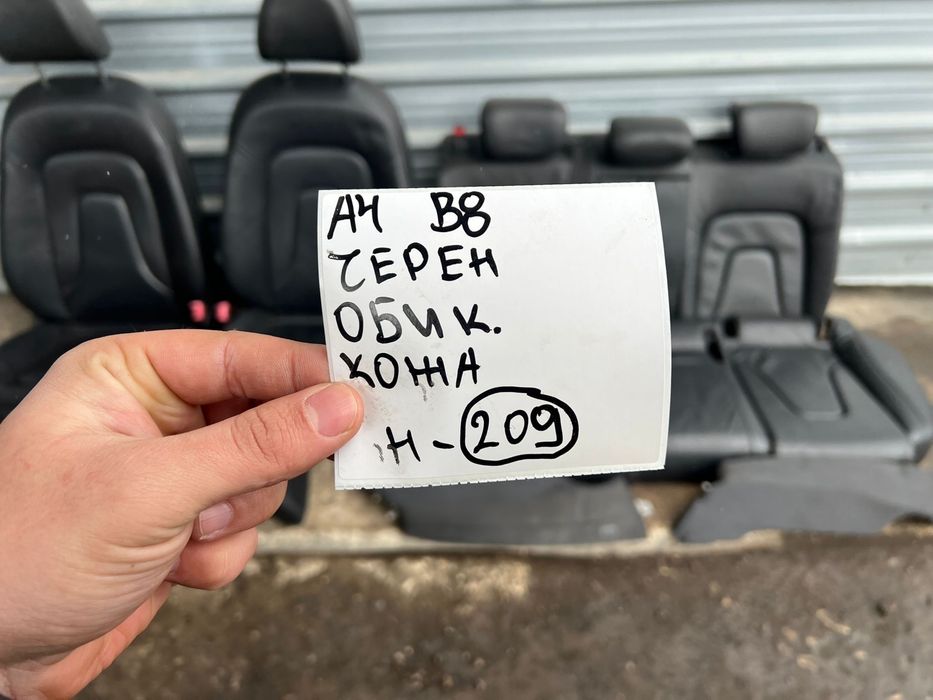 А4 B8
ЧЕРЕН
ОБИК.
КОЖА
Н - 209